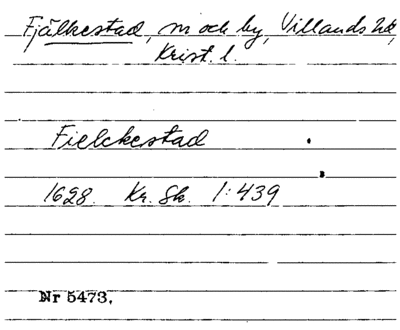 Fjälkestad, m och by, Villands hd,
Krist. l.
Fielckestad
1628. Kr. Sk. 1:439
Nr 5473,